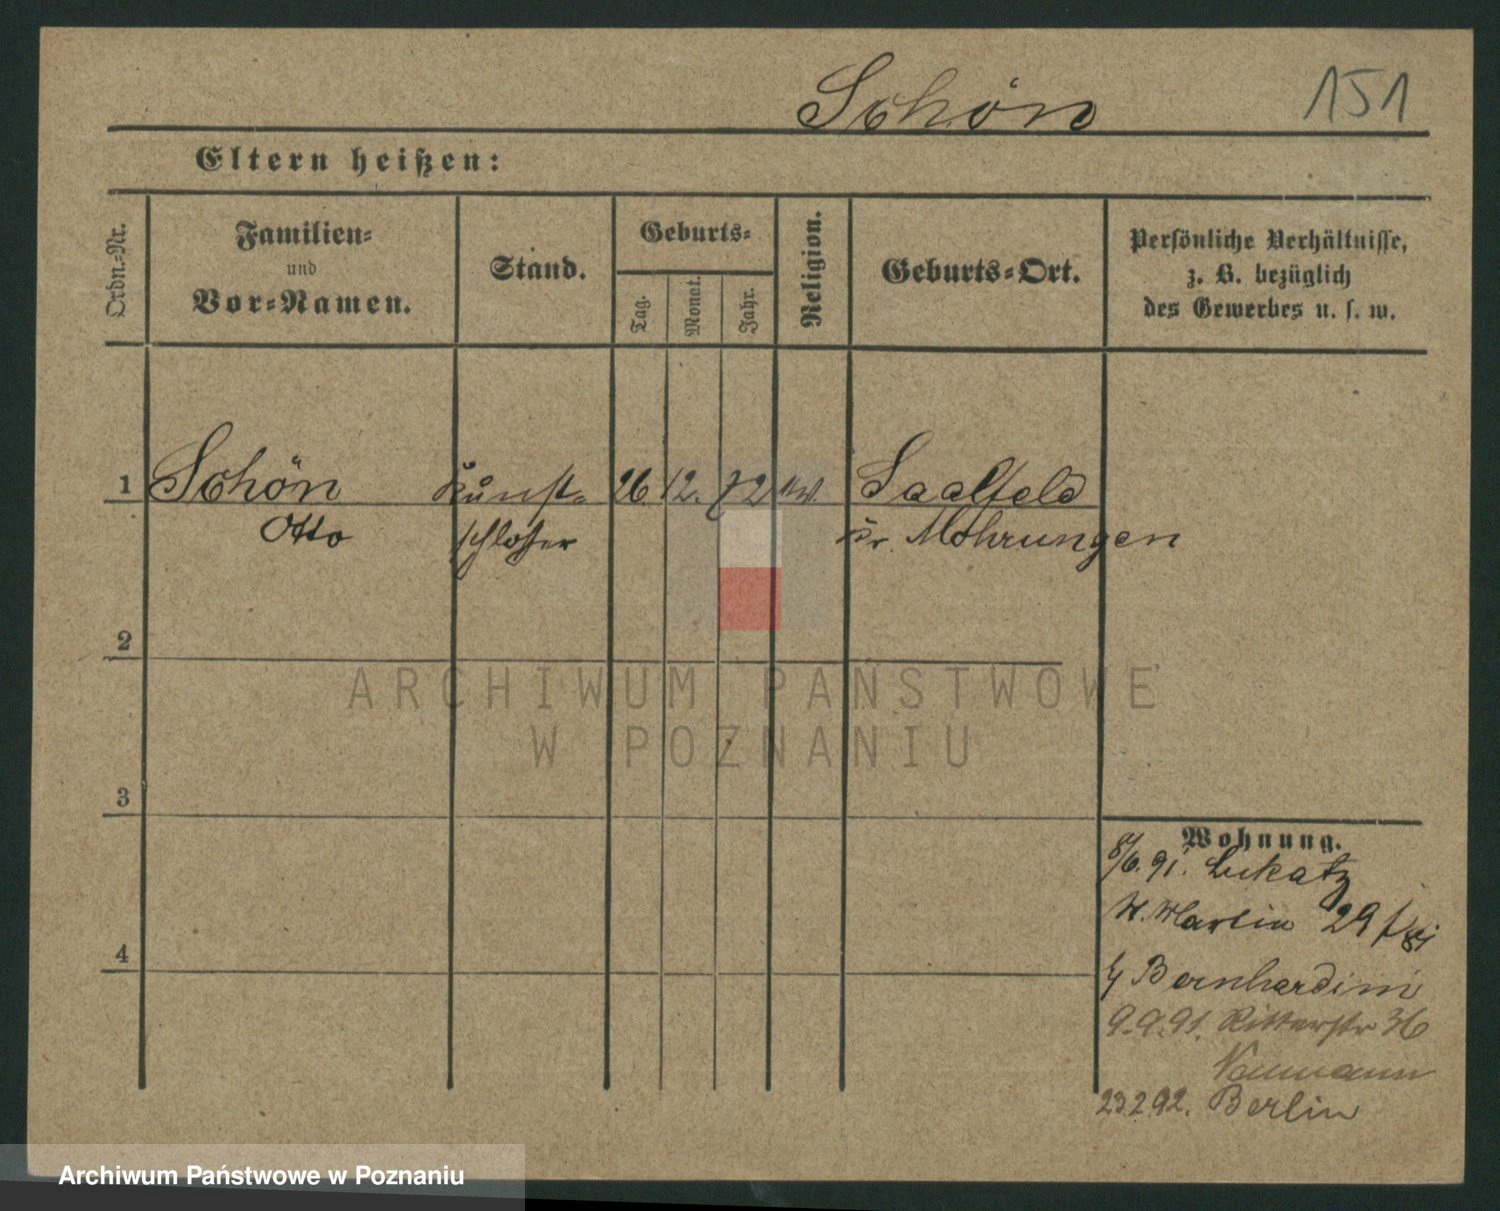 Schön 151
Eltern heißen:
Ordn.-Nr.
Familien-
und
Vor-Namen.
Stand.
Geburts-
Tag.
Monat.
Jahr.
Religion.
Geburts-Ort.
Persönliche Verhältnisse,
z. B. bezüglich
des Gewerbes u. s. w.
1 Schön Kunst- 26 12. 72 ev. Saalfeld
Otto schlosser Kr. Mohrungen
2
ARCHIWUM PAŃSTWOWE
W POZNANIU
3
Wohnung.
8/6. 91. Lukatz
St. Martin 29
4
Bernhardini
9.9.91. Ritterstr 36
Naumann
23.2.92. Berlin
Archiwum Państwowe w Poznaniu